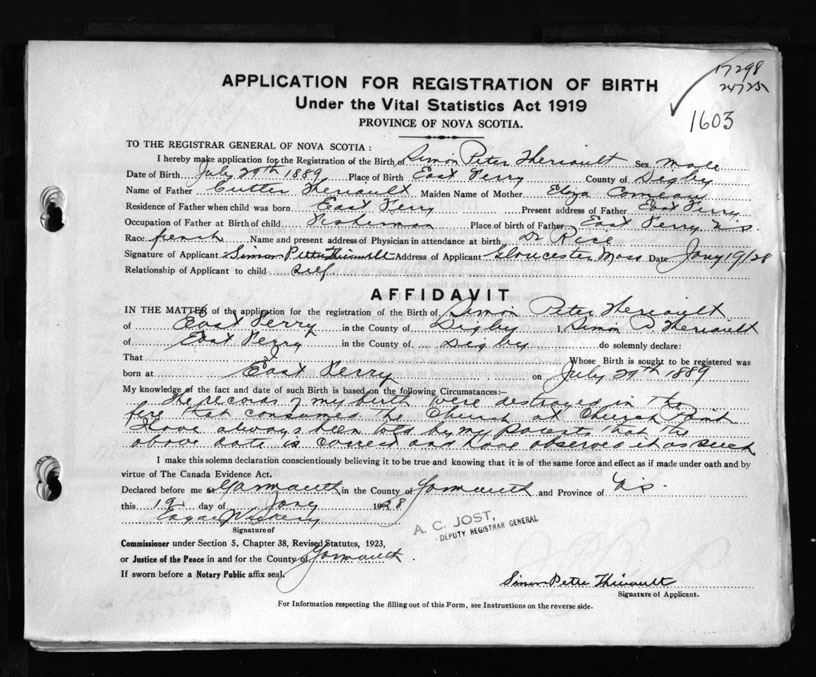 17298
24725
1603
APPLICATION FOR REGISTRATION OF BIRTH
Under the Vital Statistics Act 1919
PROVINCE OF NOVA SCOTIA.
TO THE REGISTRAR GENERAL OF NOVA SCOTIA :
I hereby make application for the Registration of the Birth of Simon Peter Theriault Sex Male
Date of Birth July 29th 1889 Place of Birth East Ferry County of Digby
Name of Father Cutler Theriault Maiden Name of Mother Eliza Comeau
Residence of Father when child was born East Ferry Present address of Father East Ferry
Occupation of Father at Birth of child Fisherman Place of birth of Father East Ferry N.S.
Race french Name and present address of Physician in attendance at birth Dr Rice
Signature of Applicant Simon Peter Theriault Address of Applicant Gloucester Mass. Date Jany 19/28
Relationship of Applicant to child self
AFFIDAVIT
IN THE MATTER of the application for the registration of the Birth of Simon Peter Theriault
of East Ferry in the County of Digby I, Simon P Theriault
of East Ferry in the County of Digby do solemnly declare:
That Whose Birth is sought to be registered was
born at East Ferry on July 29th 1889
My knowledge of the fact and date of such Birth is based on the following Circumstances:—
The records of my birth were destroyed in the
fire that consumed the Church at Church Point
I have always been told by my parents that the
above date is correct and have observed it as such
I make this solemn declaration conscientiously believing it to be true and knowing that it is of the same force and effect as if made under oath and by
virtue of The Canada Evidence Act.
Declared before me at Yarmouth in the County of Yarmouth and Province of N.S.
this 19 day of Jany 1928
A. C. JOST,
DEPUTY REGISTRAR GENERAL
Signature of
Commissioner under Section 5, Chapter 38, Revised Statutes, 1923,
or Justice of the Peace in and for the County of Yarmouth.
If sworn before a Notary Public affix seal.
Simon Peter Theriault
Signature of Applicant.
For Information respecting the filling out of this Form, see Instructions on the reverse side.